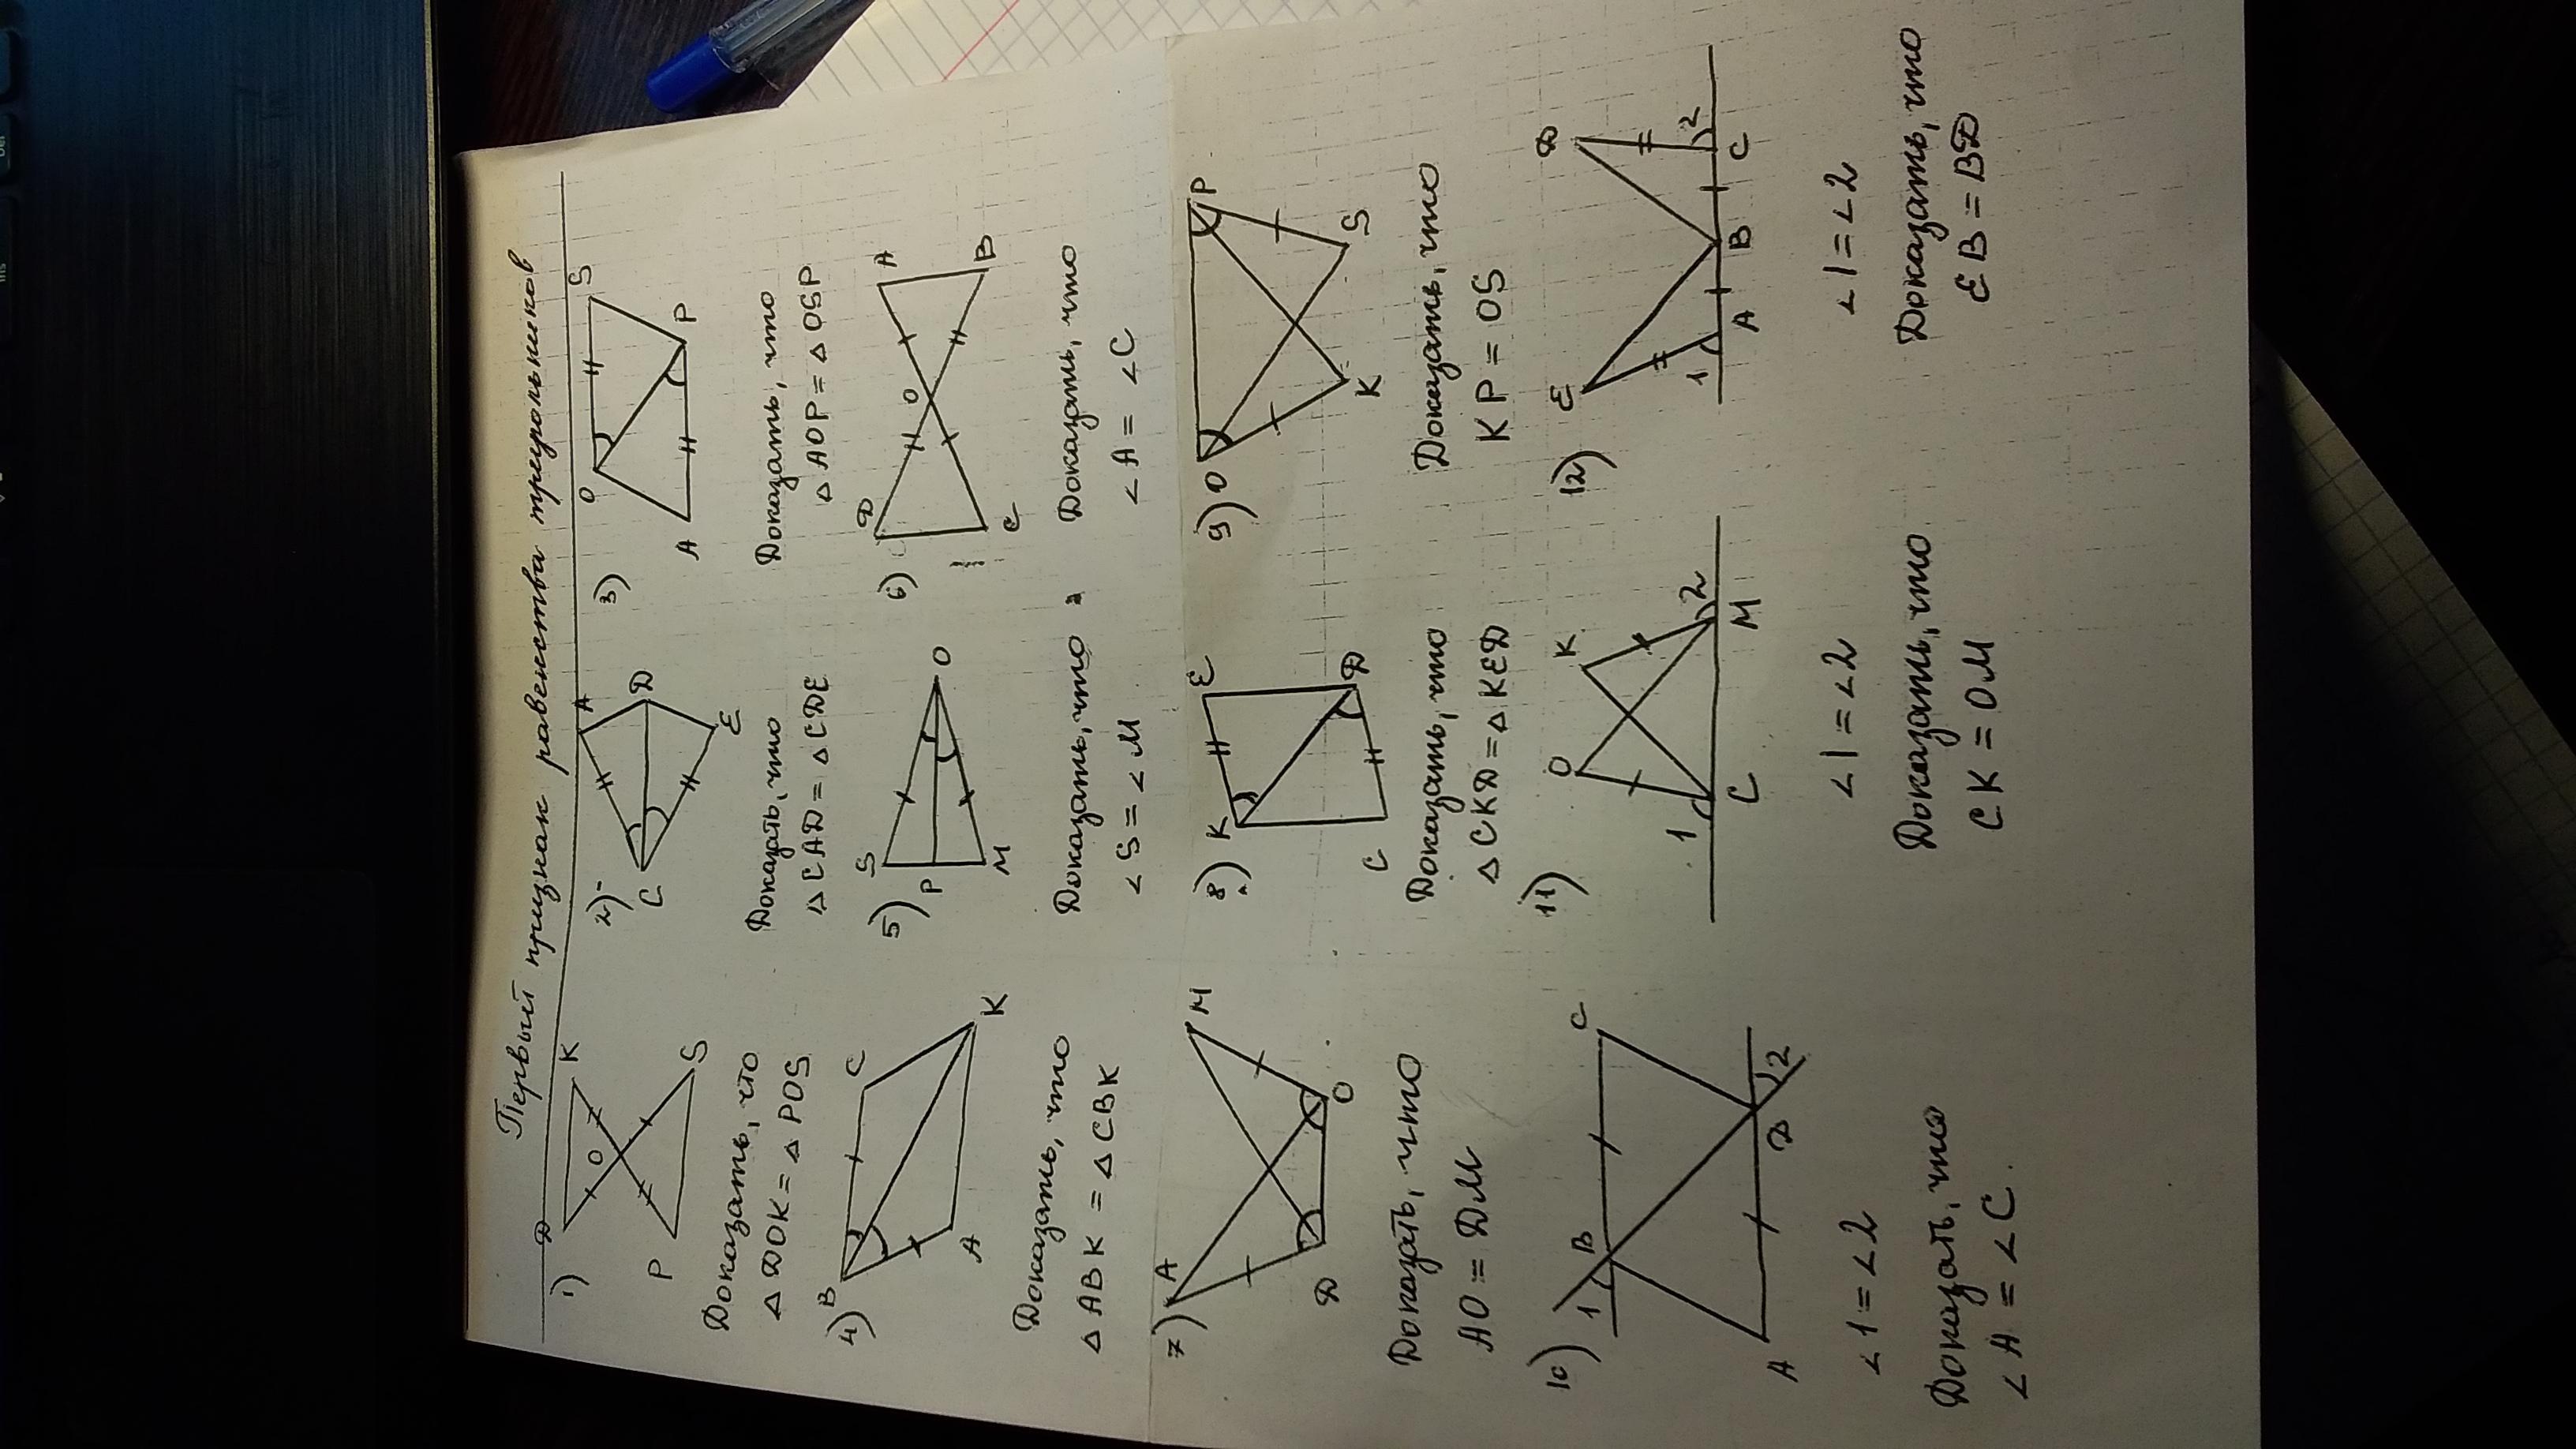 Первый признак равенства треугольников
1)
Д
K
O
P
S
Доказать, что
△ ДOK = △ POS
2)
A
C
Д
E
Доказать, что
△ CAД = △ CДE
3)
O
S
A
P
Доказать, что
△ AOP = △ OSP
4)
B
C
A
K
Доказать, что
△ ABK = △ CBK
5)
S
P
O
M
Доказать, что
∠ S = ∠ M
6)
Д
A
O
C
B
Доказать, что
∠ A = ∠ C
7)
A
M
Д
O
Доказать, что
AO = ДM
8)
K
E
C
Д
Доказать, что
△ CKД = △ KEД
9)
O
P
K
S
Доказать, что
KP = OS
10)
1
B
C
A
Д
2
∠ 1 = ∠ 2
Доказать, что
∠ A = ∠ C.
11)
O
K
1
C
M
2
∠ 1 = ∠ 2
Доказать, что
CK = OM
12)
E
Д
1
A
B
C
2
∠ 1 = ∠ 2
Доказать, что
EB = BД